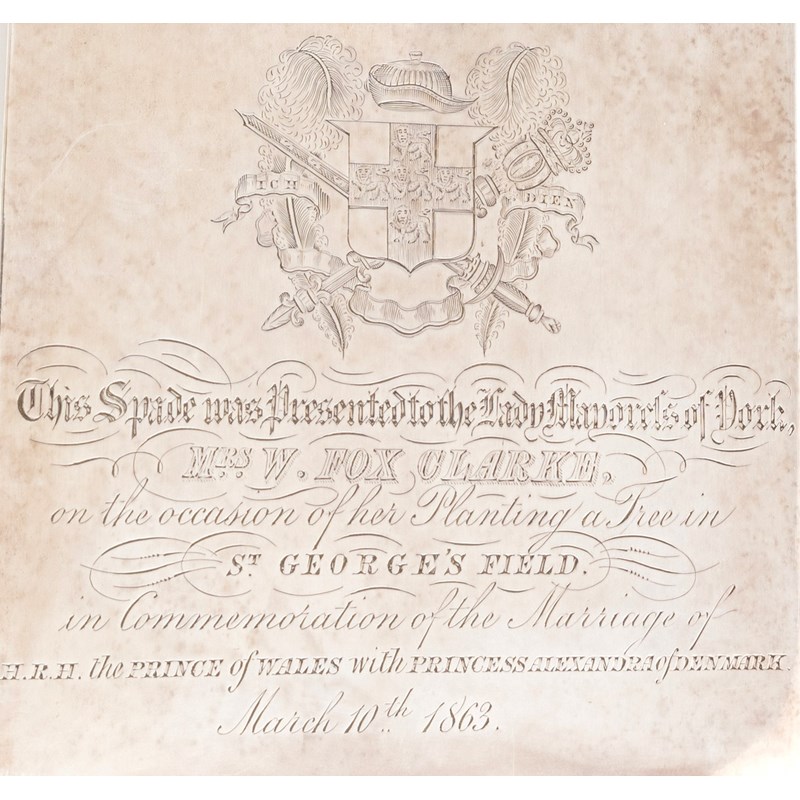 ICH DIEN
This Spade was Presented to the Lady Mayoress of York,
MRS W. FOX CLARKE,
on the occasion of her Planting a Tree in
ST GEORGE'S FIELD.
in Commemoration of the Marriage of
H.R.H. the PRINCE of WALES with PRINCESS ALEXANDRA of DENMARK.
March 10th 1863.